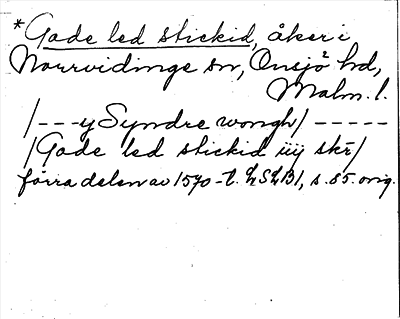 *Gade led stickid, åker i
Norrvidinge sn, Onsjö hd,
Malm. l.
/---y Syndre wongh/-----
/Gade led stickid iiij skr/
förra delen av 1570-t. LSLB1, s. 85. orig.